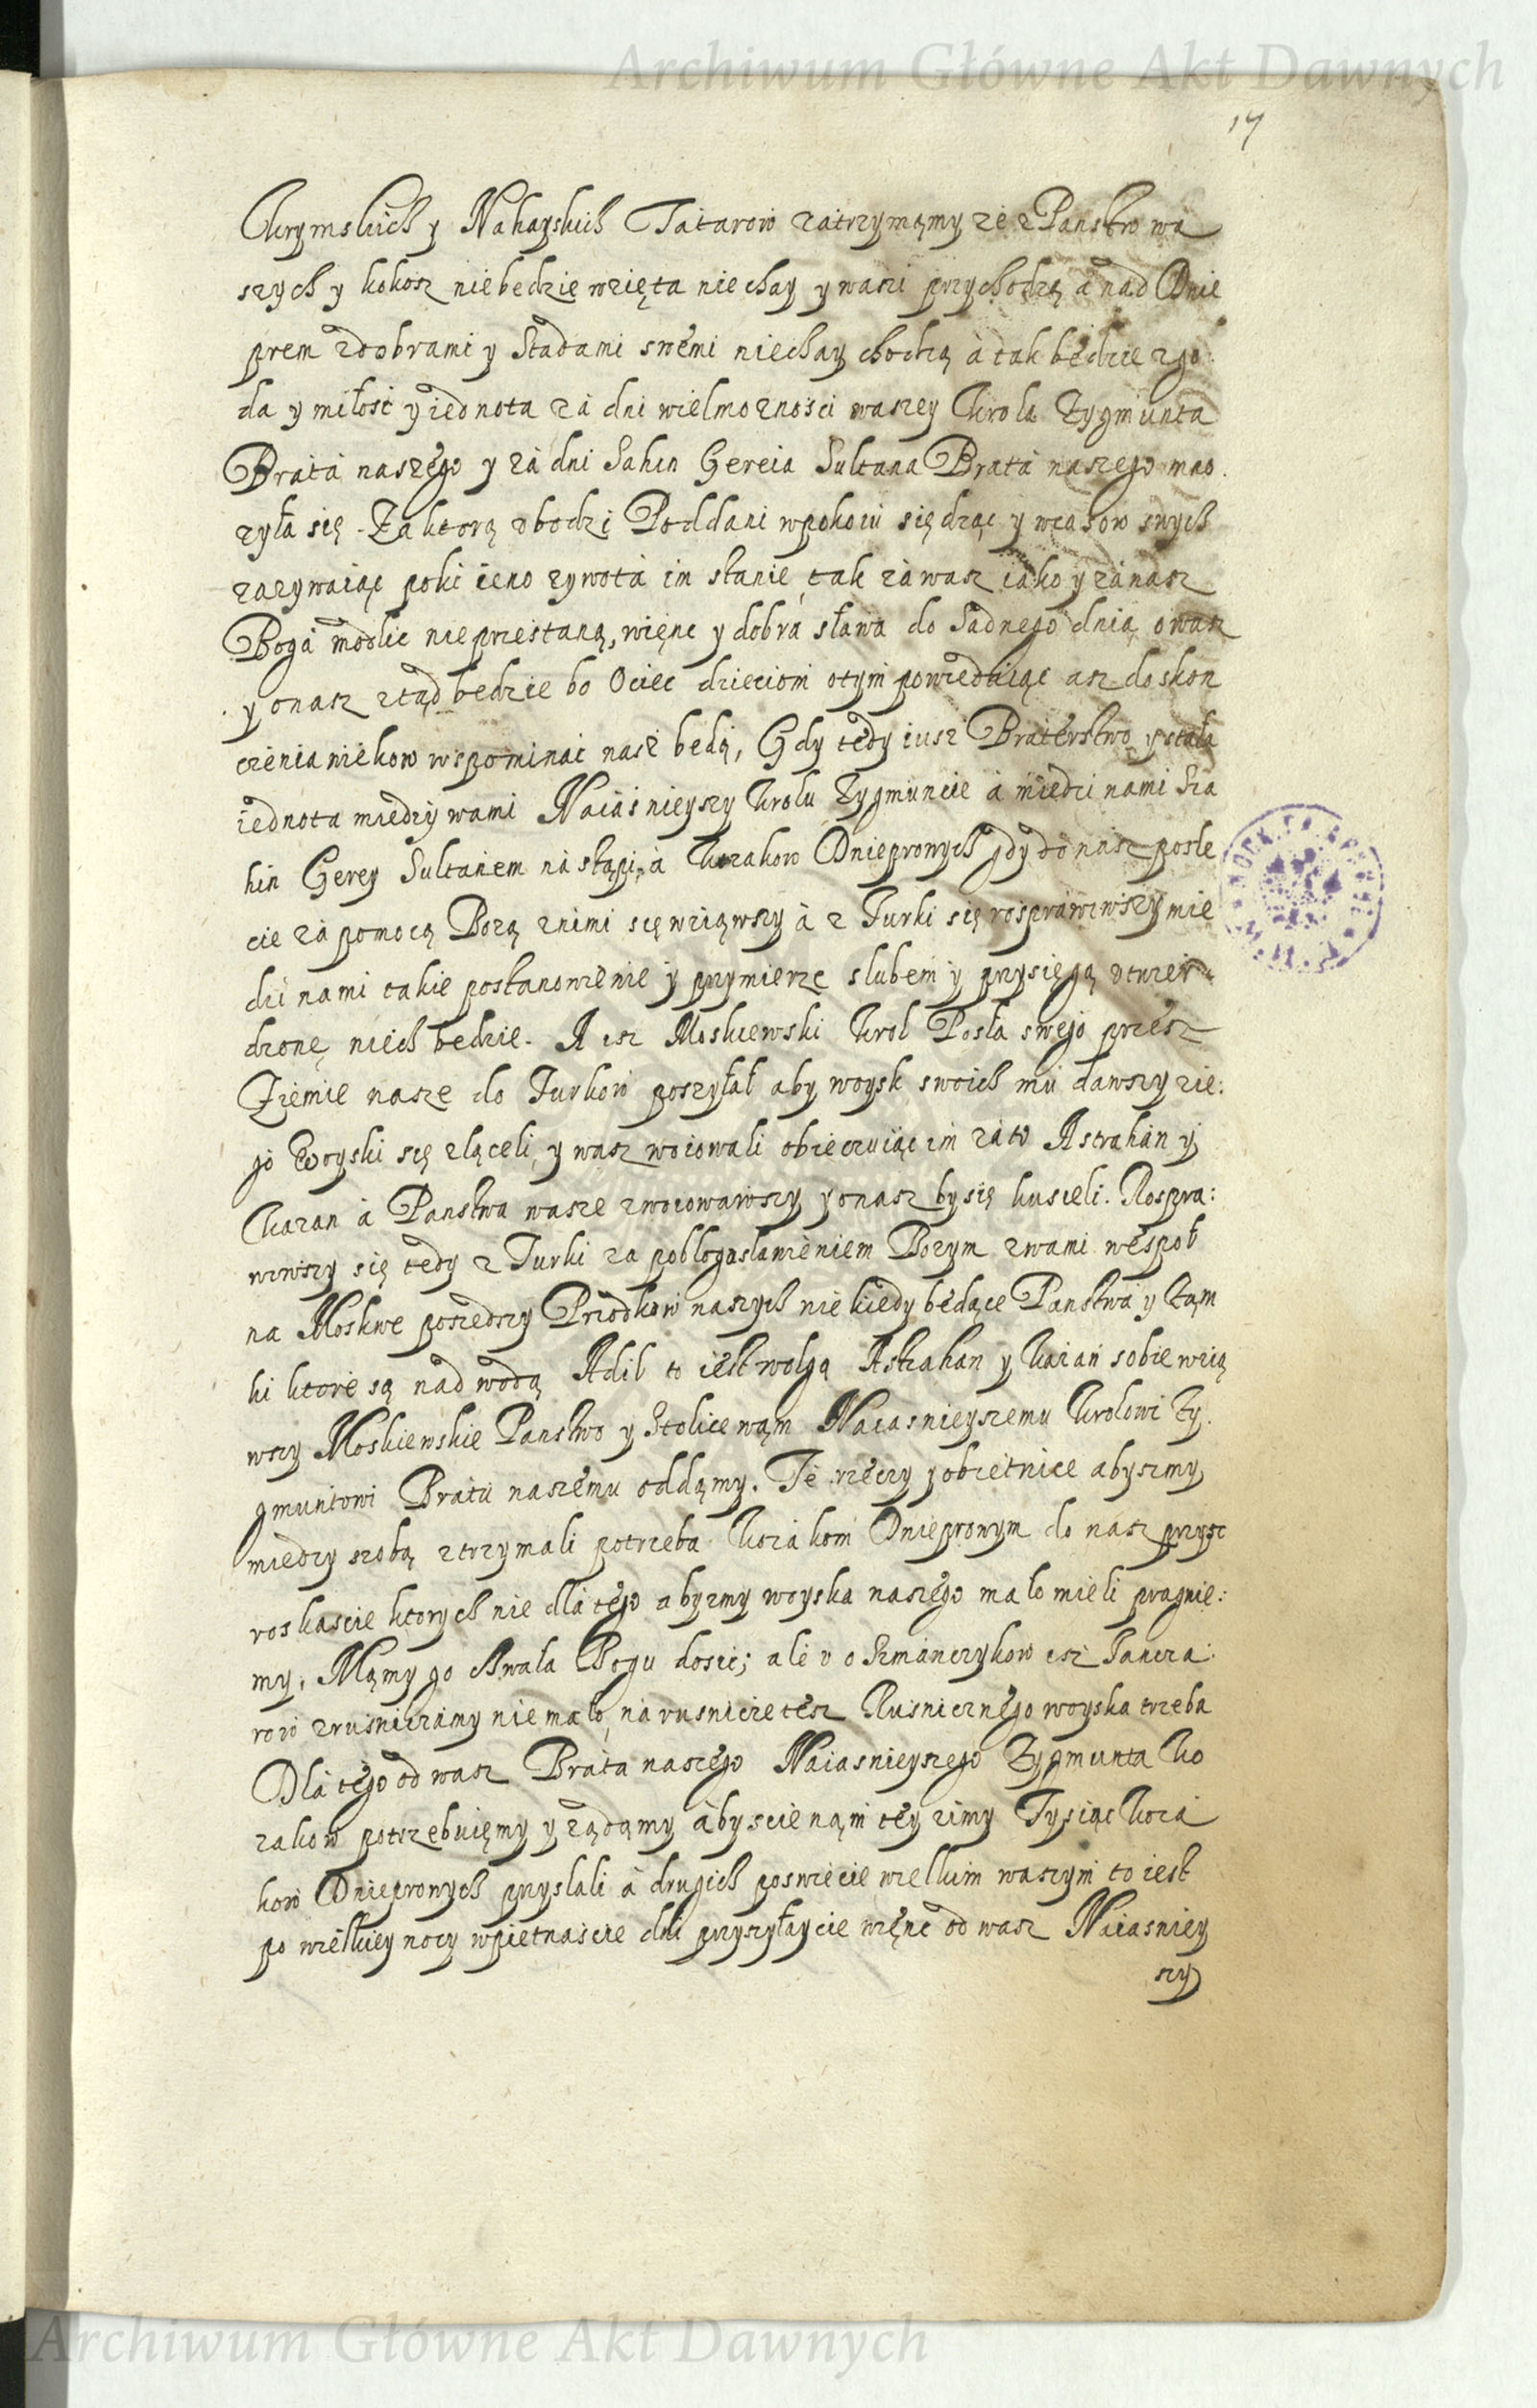 Archiwum Główne Akt Dawnych
17
Krymskich y Nahayskich Tatarow zatrzymąmy że z Panstw wa
szych y kokosz niebedzie wzięta niechay y waszi przychodzą à nad Dnie
prem z dobrami y Stadami swemi niechay chodzą à tak będzie zgo:
da y miłosć y iednota zà dni wielmoznosci waszey Krola Zygmunta
Bratà naszego y zà dni Sahin Gereia Sultana Bratà naszego mno
zyła się. Za ktorą obodzi Poddani wpokoiu siędząc y wczasow swych
zazywaiąc poki ieno zywotà im stanie, tak zà wasz iako y zà nasz
Bogà modlic nieprzestaną, więnc y dobrà sława do Sadnego dnią o wasz
y onasz ztąd bedzie bo Ociec dzieciom otym powiedaiąc asz do skon
czenia wiekow wspominać nasz będą, Gdy tedy iusz Braterstwo y stała
iednota miedzy wami Naiàsnieyszy Krolu Zygmuncie à miedzi nami Sza
hin Gerey Sultanem nà stąpi, à Kozakow Dnieprowych gdy do nasz posle
cie zà pomocą Bozą znimi się wziąwszy à z Turki się rosprawiwszy mie
dzi nami takie postanowienie y przymierze slubem y przysięgą utwier
dzonę niech bedzie. A isz Moskiewski Krol Posła swego przesz
Ziemie nasze do Turkow poszyłał aby woysk swoich mu dawszy zie:
go Woyski się zlączeli, y wasz woiowali obiecuiąc im zàto Astrahan y
Kazan à Panstwa wasze zwoiowawszy y o nasz by się kusieli. Rospra:
wiwszy się tedy z Turki za pobłogosławieniem Bozym z wami wespoł
na Moskwe poszedszy Przodkow naszych niekiedy będące Panstwa y Ząm
ki ktore są nad wodą Adil to iest wolgą Astrahan y Kazań sobie wzią
wszy Moskiewskie Panstwo y Stolice wąm Naiasnieyszemu Krolowi Zy
gmuntowi Bratu naszemu oddąmy. Te rzeczy y obietnice abyszmy
miedzy szobą ztrzymali potrzeba Kozakom Dnieprowym do nasz przysc
roskascie ktorych nie dlà tego abyzmy woyska naszego mało mieli pragnie:
my, Mąmy go chwała Bogu dosić; ale u o Szmànczykow isz Iancza
row zrusniczàmy nie mało, nà rusnicze tesz Rusnicznego woyska trzeba
Dlà tego od wasz Brata naszego Naiasnieyszego Zygmunta Ko
zakow potrzebuięmy y ządąmy àbyscie nąm tey zimy Tysiąc Kozà
kow Dnieprowych przyslali à drugich poswiecie wielkim waszym to iest
po wielkiey nocy wpietnascie dni przyszyłaycie więnc od wasz Naiasniey
szy
Archiwum Główne Akt Dawnych